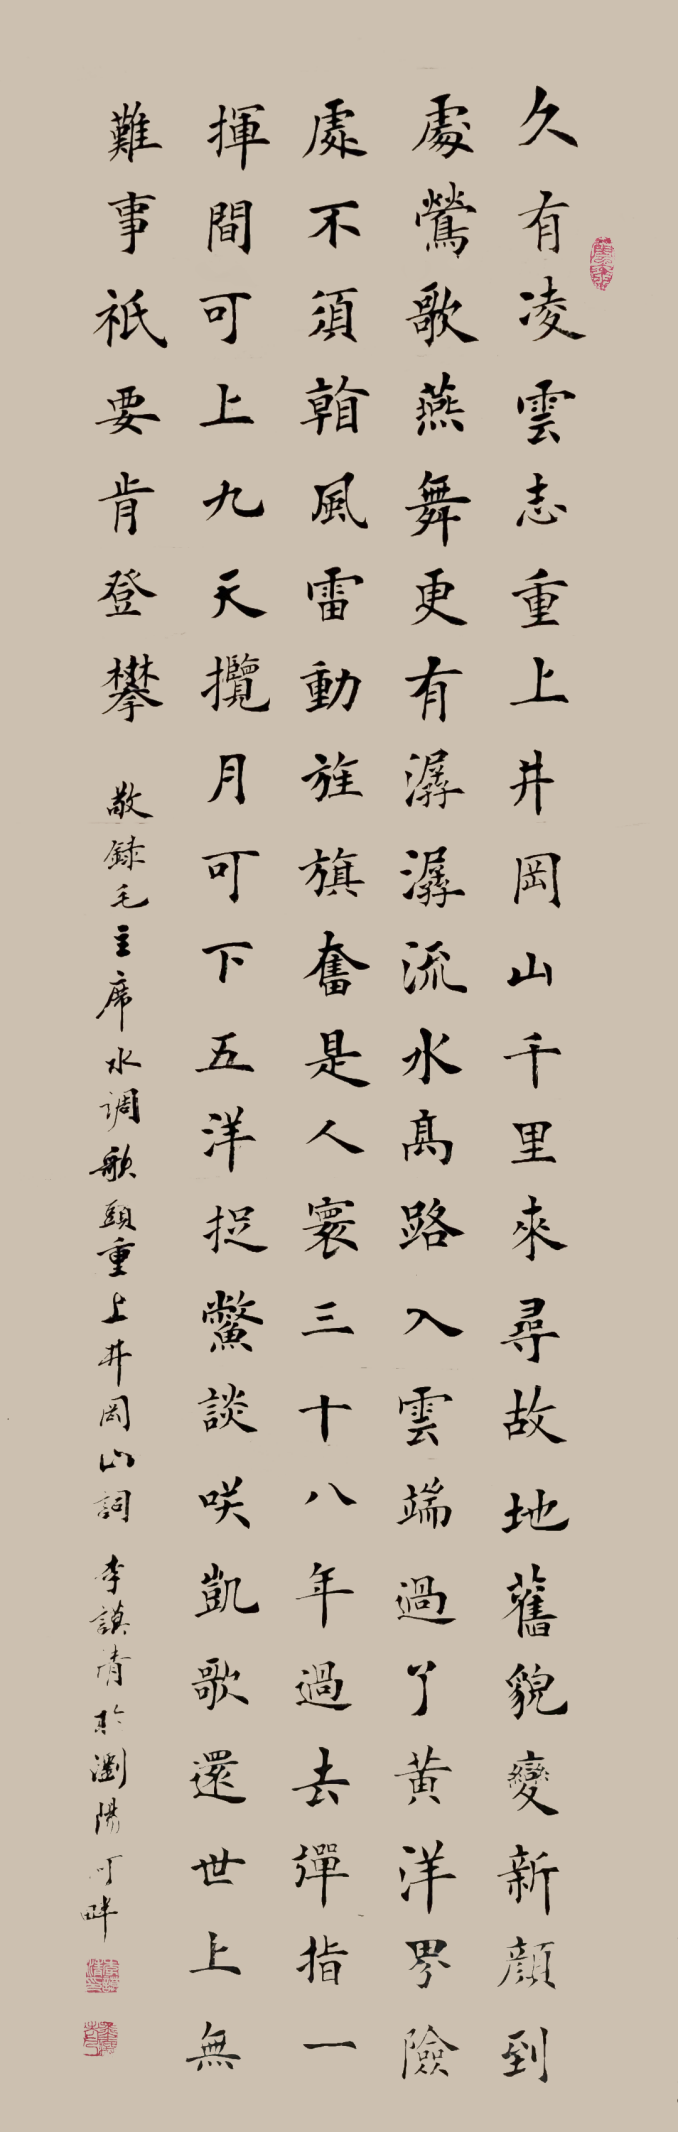 久有凌雲志重上井岡山千里來尋故地舊貌變新顔到
處鶯歌燕舞更有潺潺流水高路入雲端過了黄洋界險
處不須㫪風雷動旌旗奮是人寰三十八年過去彈指一
揮間可上九天攬月可下五洋捉鱉談咲凱歌還世上無
難事祇要肯登攀
敬録毛主席水调歌頭重上井岡山詞 李謨清於瀏陽河畔